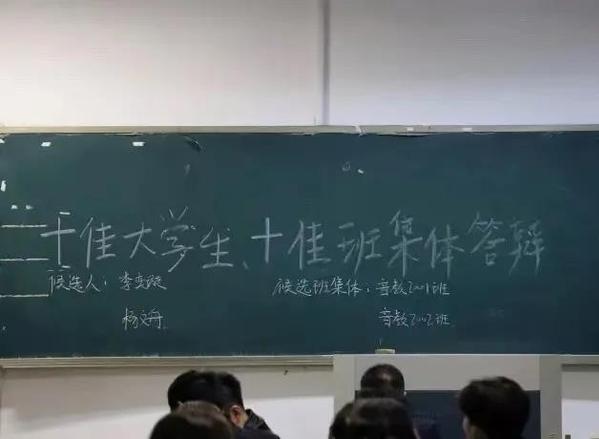 十佳大学生、十佳班集体答辩
候选人：李奕璇 候选班集体：音教2001班
杨文舟 音教2002班